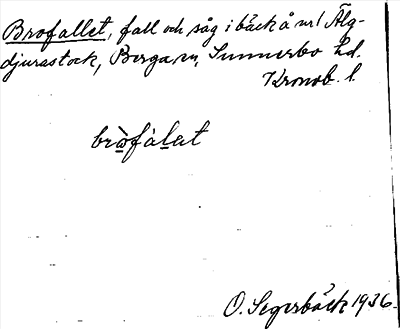 Brofallet, fall och såg i bäck å nr 1 Älg-
djurastock, Berga sn, Sunnerbo hd.
Kronob. l.
bròfàlet
O. Segerbäck 1936.